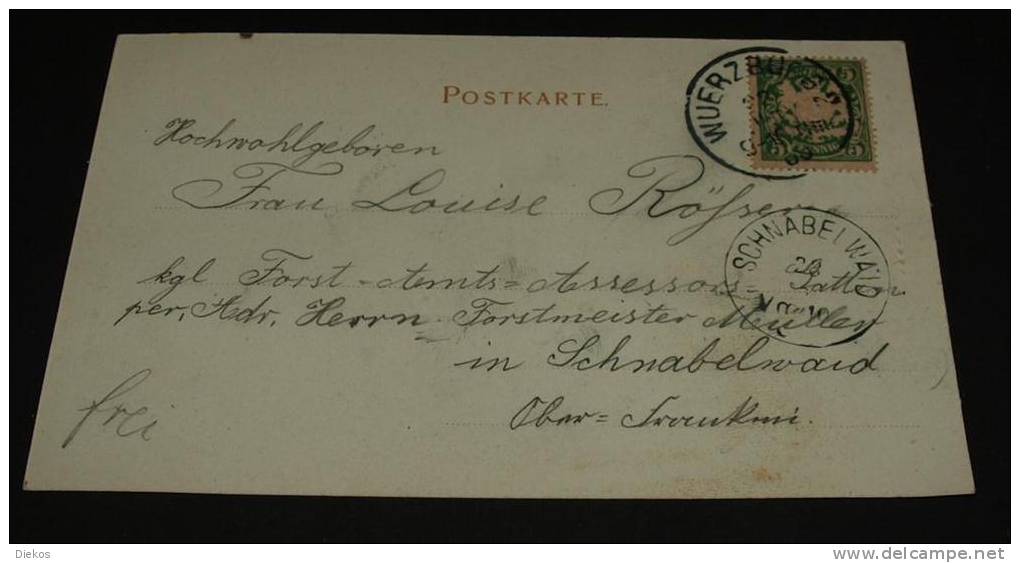 POSTKARTE.
WUERZBURG 2
5 5
5 5
Hochwohlgeboren
Frau Louise
SCHNABELWAID
kgl Forst-Amts=Assessors=Gattin
per, Adr, Herrn Forstmeister Müller
in Schnabelwaid
Ober=Franken.
frei
Diekos
www.delcampe.net